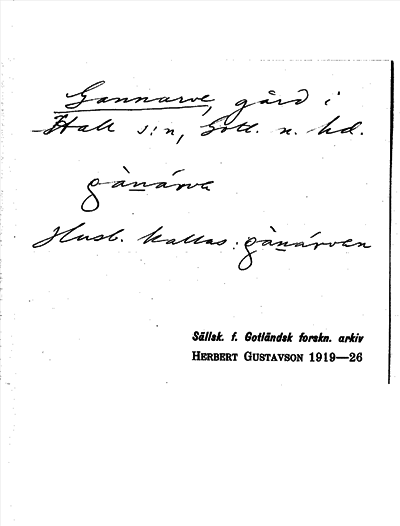 Gannarve, gård i
Hall s:n, Gotl. n. hd.
gànárve
Husb. kallas: gànárven
Sällsk. f. Gotländsk forskn. arkiv
HERBERT GUSTAVSON 1919—26